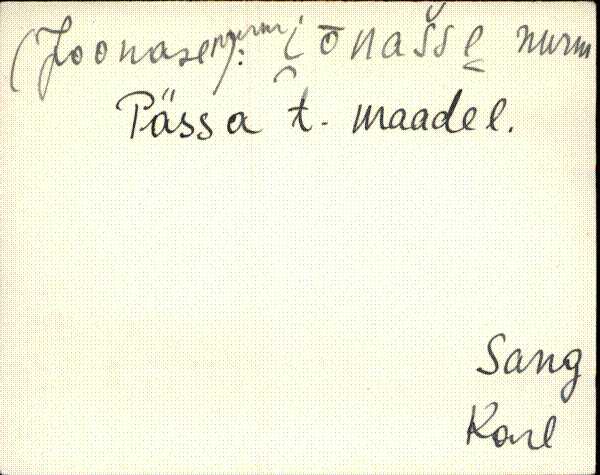 (Joonasenurm): i̮ōnašše̮ nurm
Pässa t. maadel.
Sang
Karl